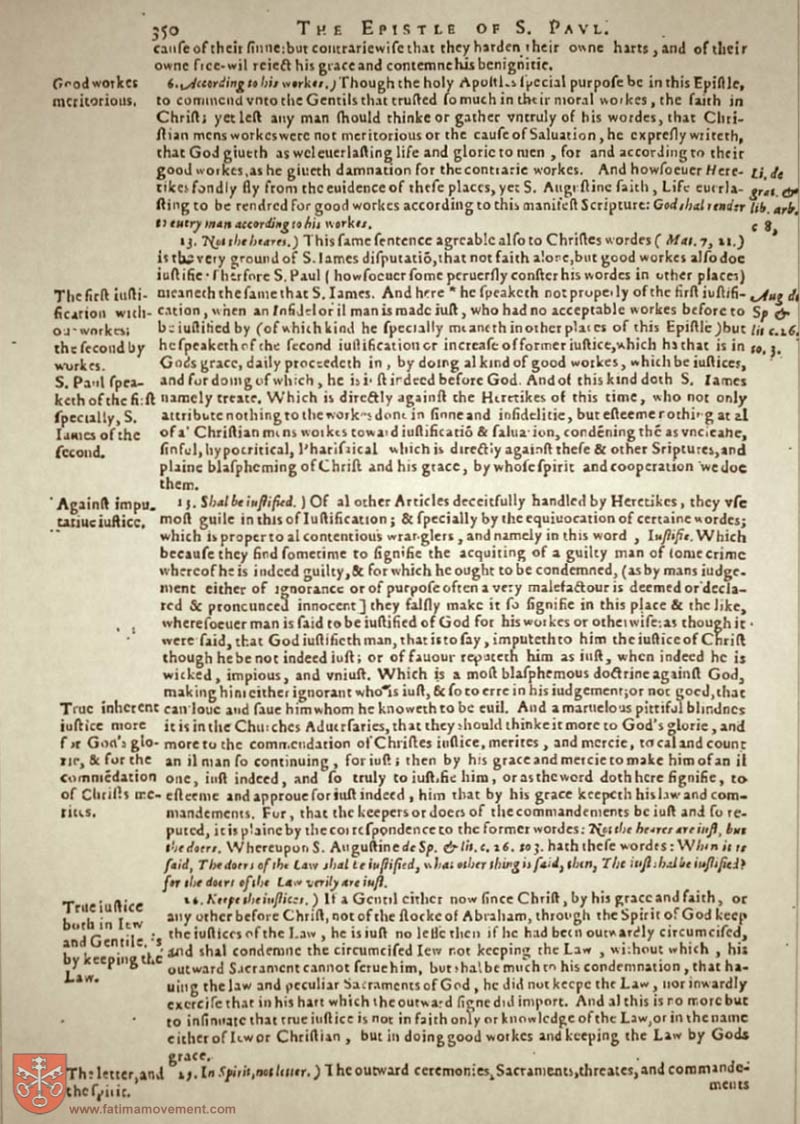 350 THE EPISTLE OF S. PAVL.
cauſe of their ſinne: but contrariewiſe that they harden their owne harts, and of their
owne free-wil reiect his grace and contemne his benignitie.
Good workes
meritorious.
6. According to his workes.) Though the holy Apoſtles ſpecial purpoſe be in this Epiſtle,
to commend vnto the Gentils that truſted ſo much in their moral workes, the faith in
Chriſt; yet leſt any man ſhould thinke or gather vntruly of his wordes, that Chri-
ſtian mens workes were not meritorious or the cauſe of Saluation, he expreſly writeth,
that God giueth as wel euerlaſting life and glorie to men, for and according to their
good workes, as he giueth damnation for the contrarie workes. And howſoeuer Here-
tikes fondly fly from the euidence of theſe places, yet S. Auguſtine ſaith, Life euerla-
ſting to be rendred for good workes according to this manifeſt Scripture: God shal render
to euery man according to his workes.
Li. de
grat. &
lib. arb.
c 8,
13. Not the heares.) This ſame ſentence agreable alſo to Chriſtes wordes (Mat. 7, 21.)
is the very ground of S. Iames diſputatiō, that not faith alone, but good workes alſo doe
iuſtifie. Therfore S. Paul (howſoeuer ſome peruerſly conſter his wordes in other places)
meaneth the ſame that S. Iames. And here * he ſpeaketh not properly of the firſt iuſtifi-
cation, when an Infidel or il man is made iuſt, who had no acceptable workes before to
be iuſtified by (of which kind he ſpecially meaneth in other places of this Epiſtle) but
he ſpeaketh of the ſecond iuſtification or increaſe of former iuſtice, which he that is in
Gods grace, daily proceedeth in, by doing al kind of good workes, which be iuſtices,
and for doing of which, he is iuſt indeed before God. And of this kind doth S. Iames
namely treate. Which is directly againſt the Heretikes of this time, who not only
attribute nothing to the workes done in ſinne and infidelitie, but eſteeme nothing at al
of al Chriſtian mens workes toward iuſtificatiō & ſaluation, condēning thē as vncleane,
ſinful, hypocritical, Phariſaical which is directly againſt theſe & other Scriptures, and
plaine blaſpheming of Chriſt and his grace, by whoſe ſpirit and cooperation we doe
them.
The firſt iuſti-
fication with-
out workes;
the ſecond by
workes.
S. Paul ſpea-
keth of the firſt
ſpecially, S.
Iames of the
ſecond.
Aug de
Sp &
lit c. 26.
to. 3.
Againſt impu-
tatiue iuſtice.
13. Shal be iuſtified.) Of al other Articles deceitfully handled by Heretikes, they vſe
moſt guile in this of Iuſtification; & ſpecially by the equiuocation of certaine wordes;
which is proper to al contentious wranglers, and namely in this word, Iuſtifie. Which
becauſe they find ſometime to ſignifie the acquiting of a guilty man of ſome crime
whereof he is indeed guilty, & for which he ought to be condemned, (as by mans iudge-
ment either of ignorance or of purpoſe often a very malefactour is deemed or decla-
red & pronounced innocent] they falſly make it ſo ſignifie in this place & the like,
whereſoeuer man is ſaid to be iuſtified of God for his workes or otherwiſe: as though it
were ſaid, that God iuſtifieth man, that is to ſay, imputeth to him the iuſtice of Chriſt
though he be not indeed iuſt; or of fauour reputeth him as iuſt, when indeed he is
wicked, impious, and vniuſt. Which is a moſt blaſphemous doctrine againſt God,
making him either ignorant who is iuſt, & ſo to erre in his iudgement; or not good, that
can loue and ſaue him whom he knoweth to be euil. And a maruelous pittiful blindnes
it is in the Churches Aduerſaries, that they ſhould thinke it more to God's glorie, and
more to the commendation of Chriſtes iuſtice, merites, and mercie, to cal and count
an il man ſo continuing, for iuſt; then by his grace and mercie to make him of an il
one, iuſt indeed, and ſo truly to iuſtifie him, or as the word doth here ſignifie, to
eſteeme and approue for iuſt indeed, him that by his grace keepeth his law and com-
mandements. For, that the keepers or doers of the commandements be iuſt and ſo re-
puted, it is plaine by the correſpondence to the former wordes: Not the hearers are iuſt, but
the doers. Whereupon S. Auguſtine de Sp. & lit. c. 26. to 3. hath theſe wordes: When it is
ſaid, The doers of the Law shal be iuſtified, what other thing is ſaid, then, The iuſt shal be iuſtified?
for the doers of the Law verily are iuſt.
True inherent
iuſtice more
for God's glo-
rie, & for the
commēdation
of Chriſts me-
rites.
True iuſtice
both in Iew
and Gentile, is
by keeping the
Law.
26. Keepe the iuſtices.) If a Gentil either now ſince Chriſt, by his grace and faith, or
any other before Chriſt, not of the ſtocke of Abraham, through the Spirit of God keep
the iuſtices of the Law, he is iuſt no leſſe then if he had been outwardly circumciſed,
and shal condemne the circumciſed Iew not keeping the Law, without which, his
outward Sacrament cannot ſerue him, but shal be much to his condemnation, that ha-
uing the law and peculiar Sacraments of God, he did not keepe the Law, nor inwardly
exerciſe that in his hart which the outward ſigne did import. And al this is no more but
to inſinuate that true iuſtice is not in faith only or knowledge of the Law, or in the name
either of Iew or Chriſtian, but in doing good workes and keeping the Law by Gods
grace.
The letter, and
the ſpirit.
29. In Spirit, not letter.) The outward ceremonies, Sacraments, threates, and commande-
ments
www.fatimamovement.com